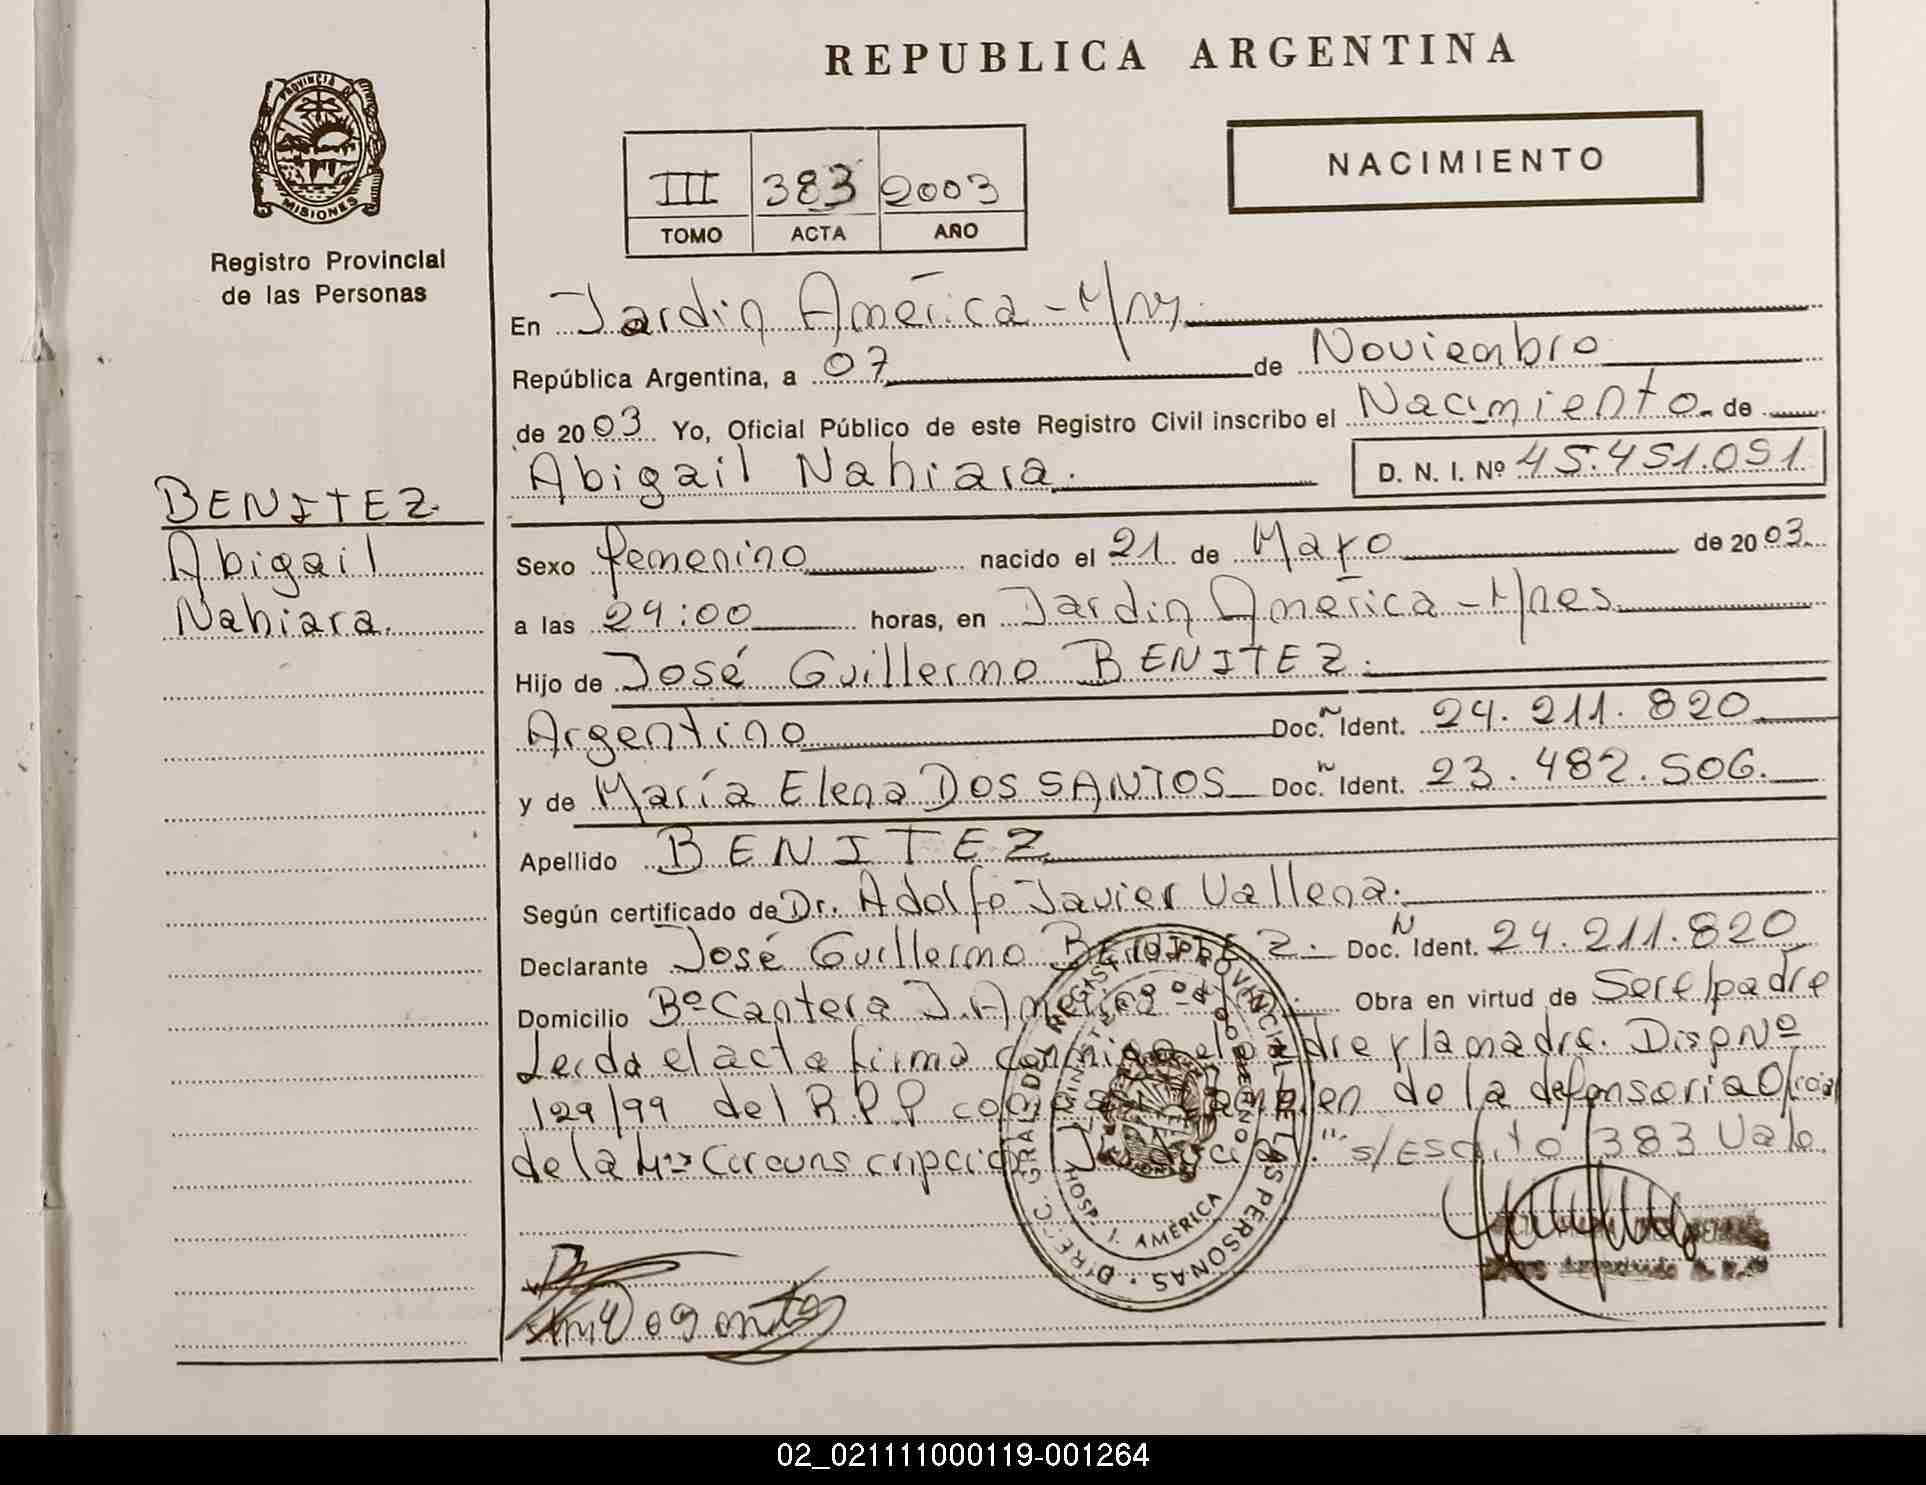 REPUBLICA ARGENTINA
PROVINCIA DE MISIONES
Registro Provincial
de las Personas
III 383 2003
TOMO ACTA AÑO
NACIMIENTO
BENITEZ.
Abigail
Nahiara.
En Jardin América - M/ny.
República Argentina, a 07 de Noviembre
de 2003. Yo, Oficial Público de este Registro Civil inscribo el Nacimiento. de
Abigail Nahiara. D. N. I. Nº 45.451.051
Sexo femenino nacido el 21 de Mayo de 2003.
a las 24:00 horas, en Jardin América - M/nes.
Hijo de José Guillermo BENITEZ.
Argentino Doc. N Ident. 24.211.820
y de María Elena DOS SANTOS Doc. N Ident. 23.482.506.
Apellido BENITEZ
Según certificado de Dr. Adolfo Javier Vallena.
Declarante José Guillermo BENITEZ. Doc. N Ident. 24.211.820
Domicilio Bº Cantera J. América Obra en virtud de Ser el padre
Leida el acta firma conmigo el padre y la madre. Disp Nº
129/99 del R.P.P de la defensoria Oficial
de la 4ta Circunscripción Judicial." s/Escrito 383 Vale.
DIREC. GRAL. DEL REGISTRO PROVINCIAL DE LAS PERSONAS
MINISTERIO DE GOBIERNO
HOSP. J. AMERICA
02_021111000119-001264